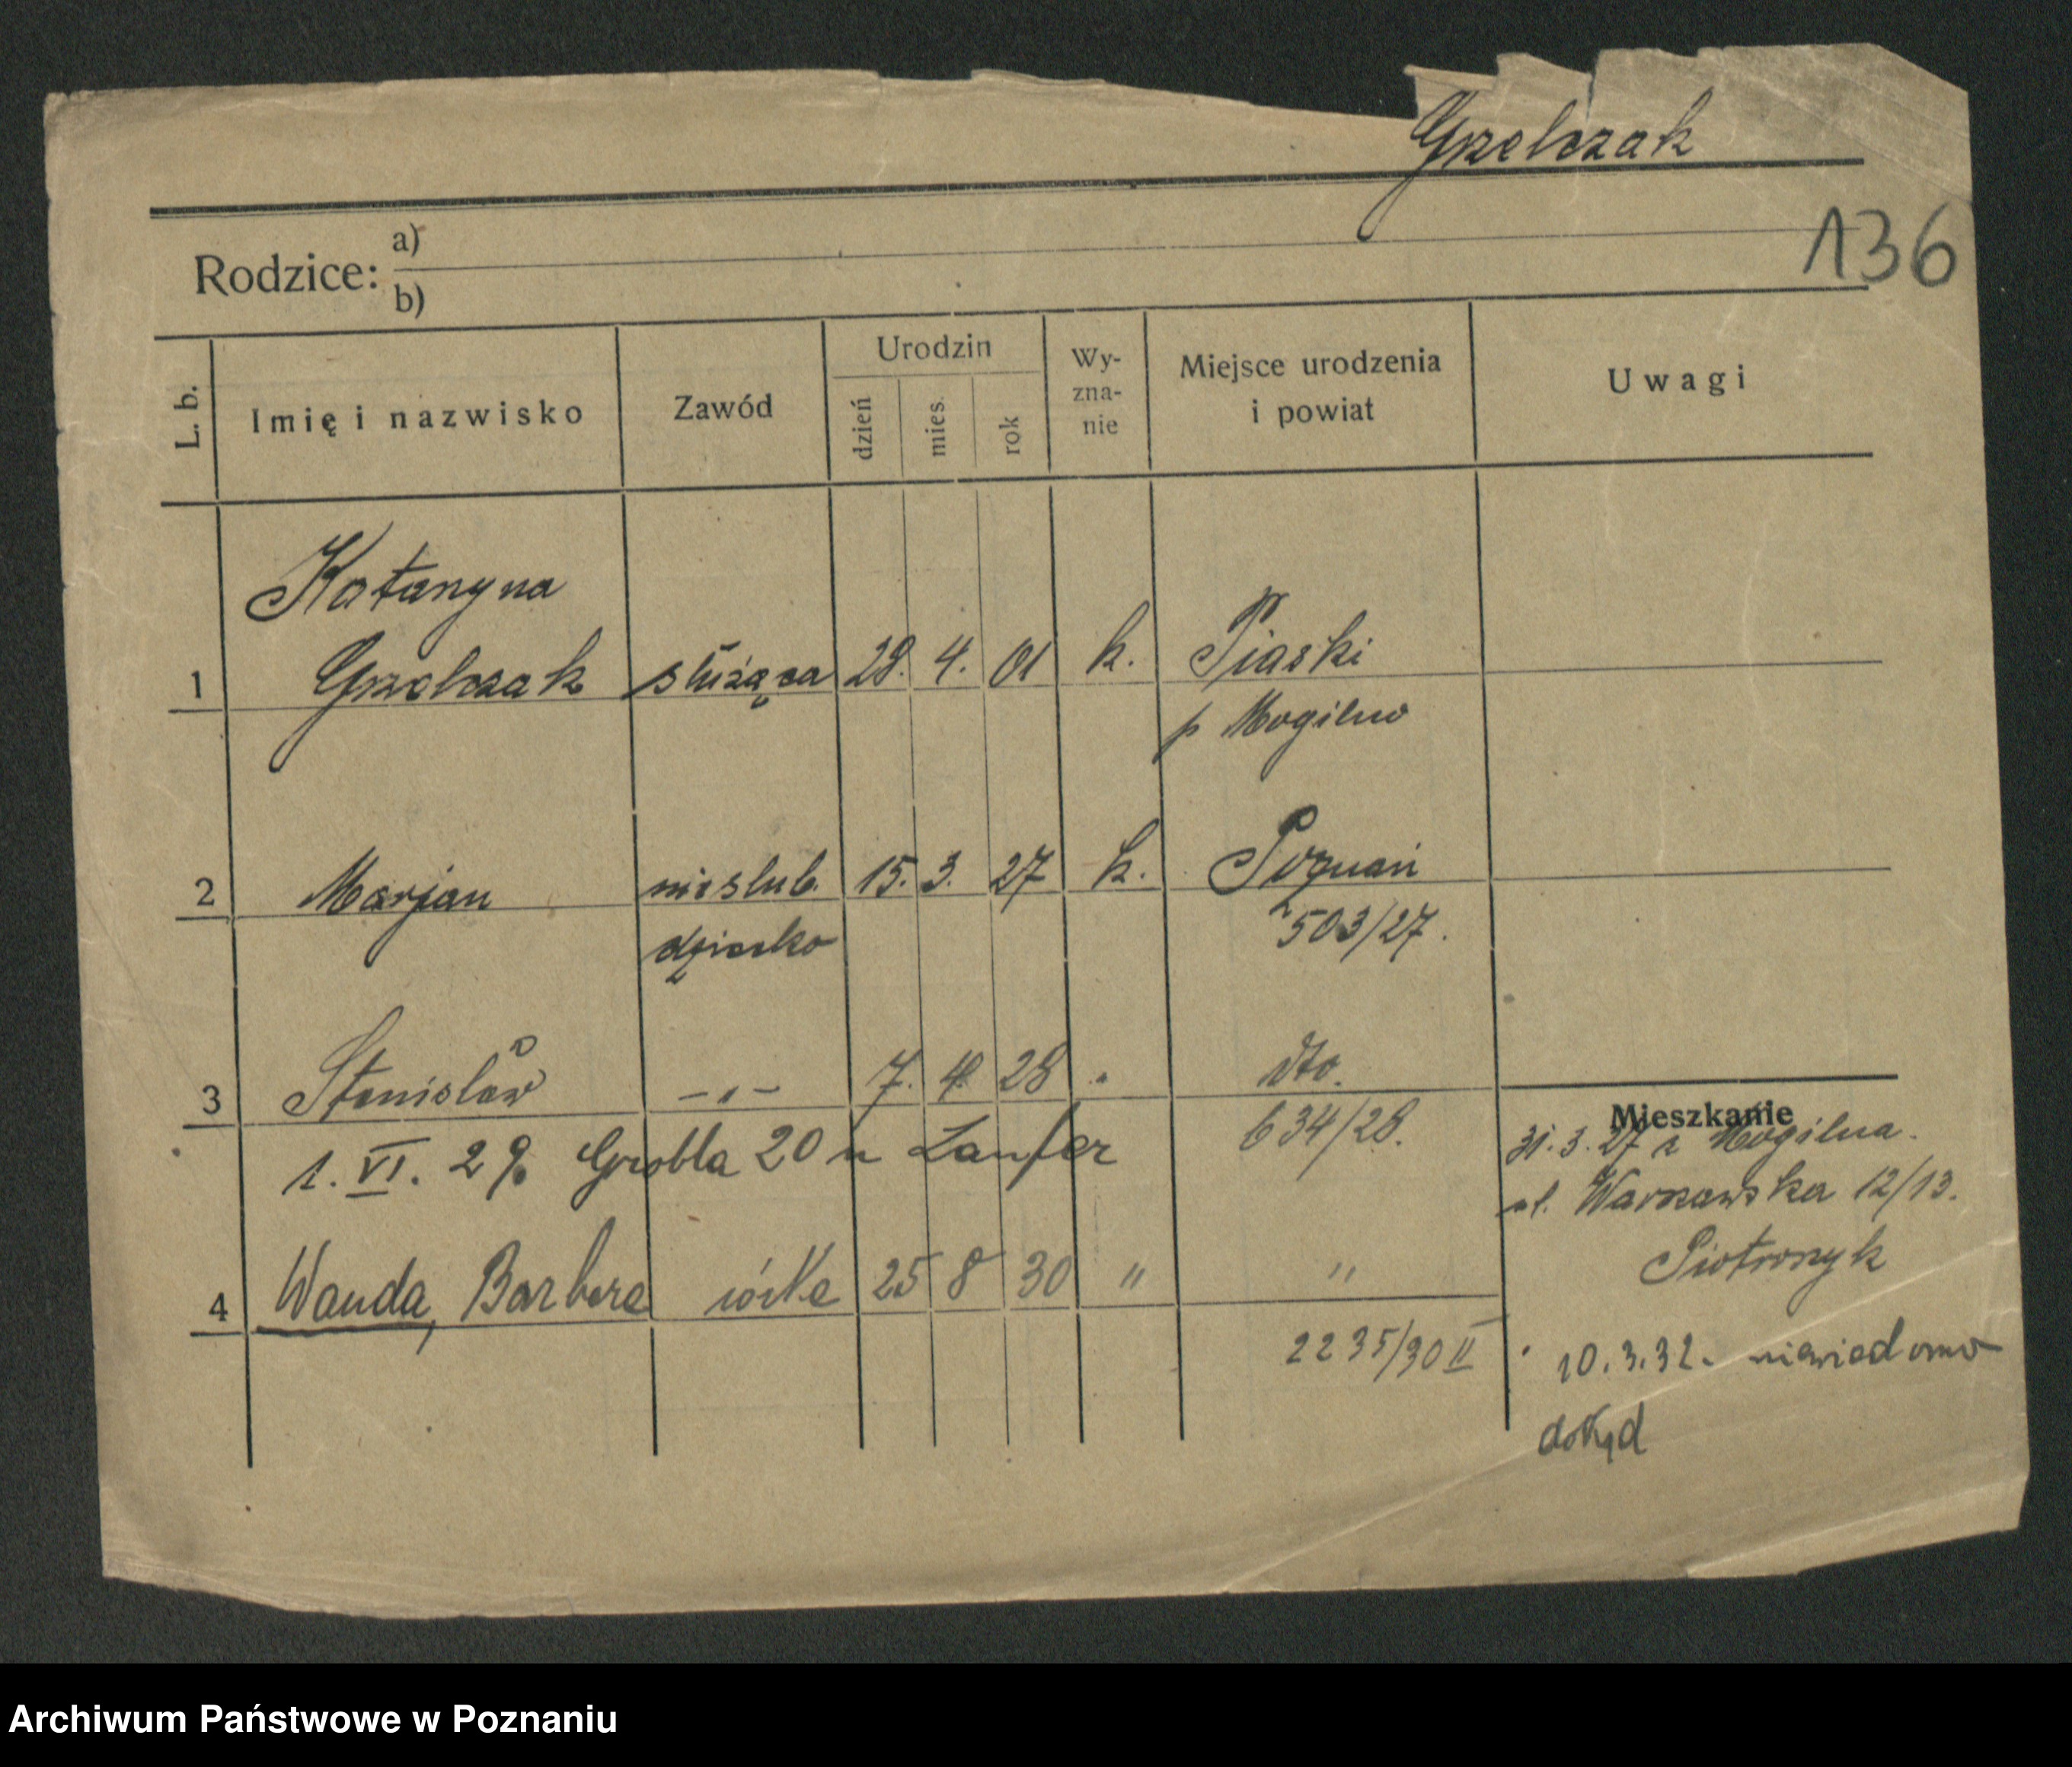 Grzelczak
136
Rodzice: a)
b)
L. b. Imię i nazwisko Zawód Urodzin dzień mies. rok Wy-zna-nie Miejsce urodzenia i powiat Uwagi
Katarzyna
1 Grzelczak służąca 28. 4. 01 k. Piaski
p Mogilno
2 Marjan nieślub. 15. 3. 27 k. Poznań
dziecko 503/27.
3 Stanisław -„- 7. 4. 28 „ dto.
634/28.
1. VI. 29. Grobla 20 u Laufer
4 Wanda, Barbara córka 25 8 30 " "
2235/30 II
Mieszkanie
31.3.27 z Mogilna.
ul. Warszawska 12/13.
Piotrowszyk
10.3.32. niewiadomo
dokąd
Archiwum Państwowe w Poznaniu